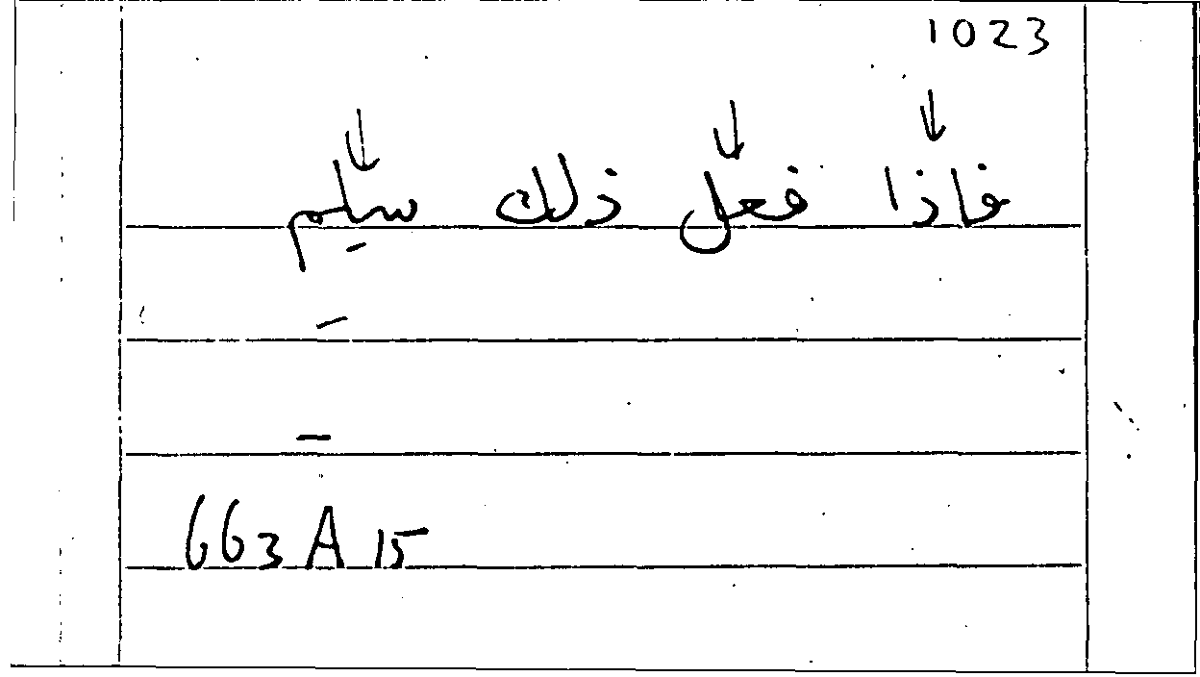 1023
فاذا فعل ذلك سلم
663 A 15